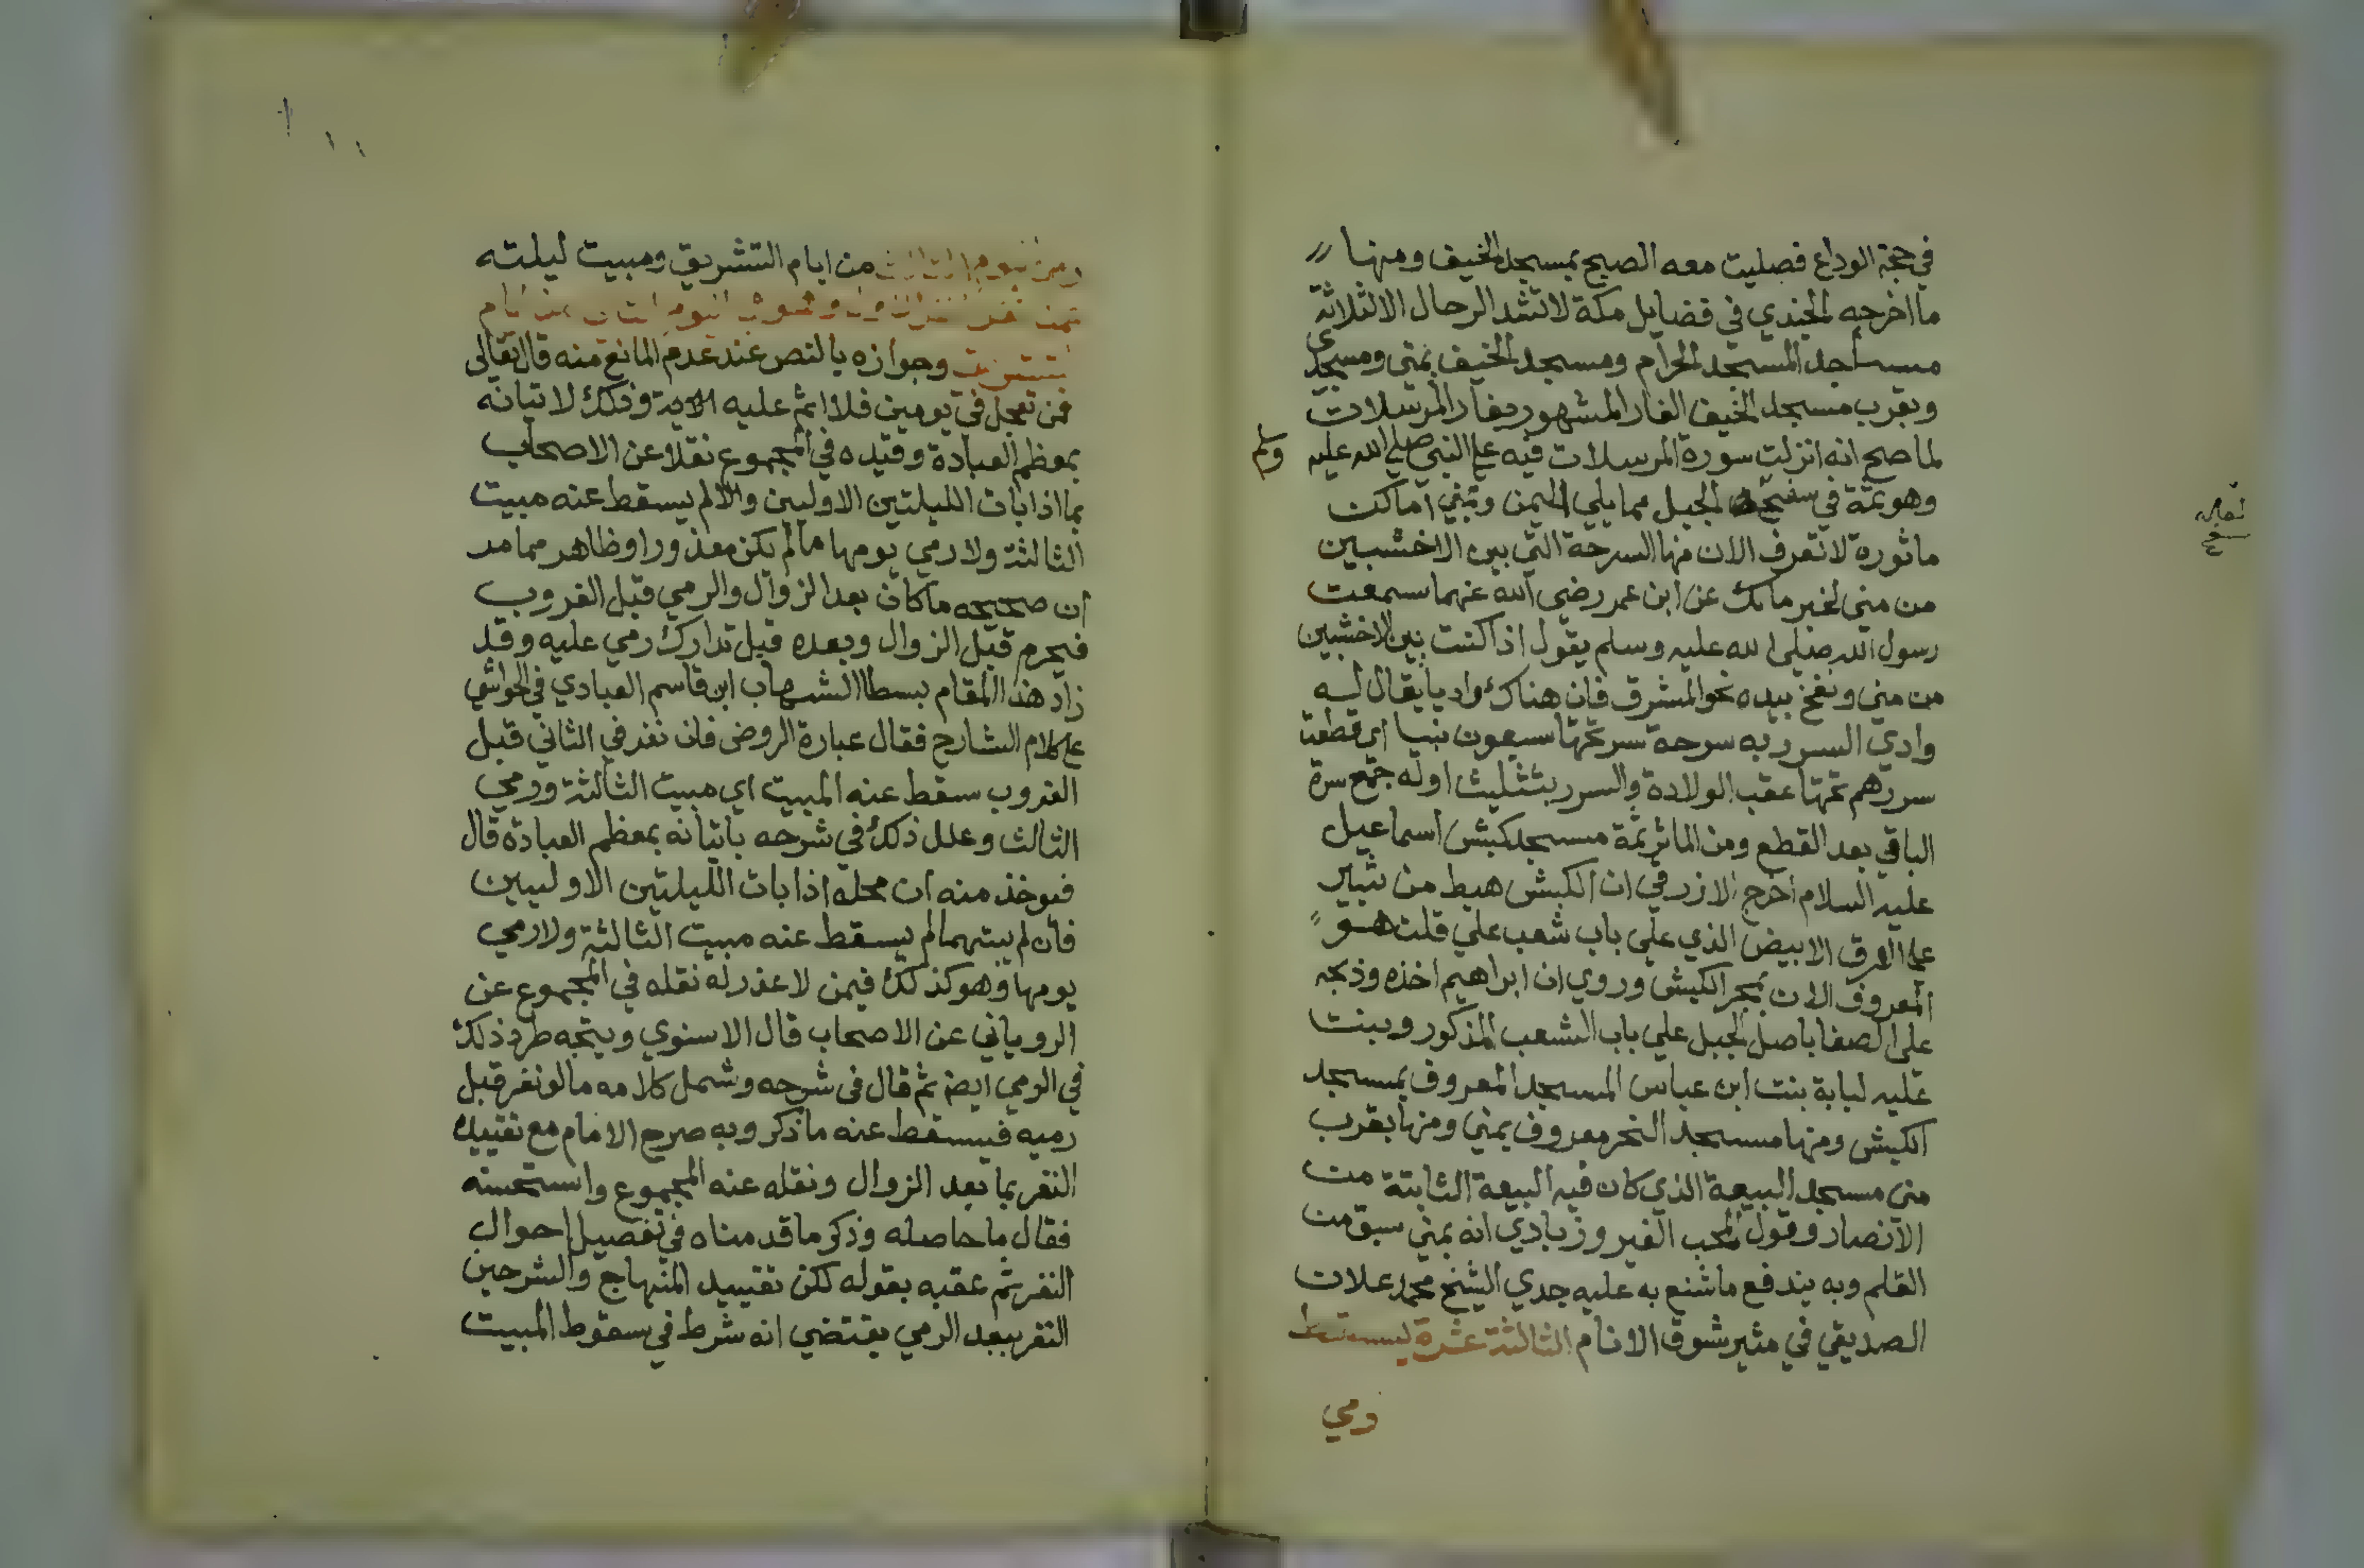 في حجة الوداع فصليت معه الصبح بمسجد الخيف ومنها
ما اخرجه الجندي في فضايل مكة لا تشد الرحال الا لثلاثة
مساجد المسجد الحرام ومسجد الخيف بمنى ومسجدى
وبقرب مسجد الخيف الغار المشهور بغار المرسلات
لما صح انه انزلت سورة المرسلات فيه على النبي صلى الله عليه وسلم
وهو ثمة في سفح الجبل مما يلي اليمن وبمنى اماكن
ماثورة لا تعرف الان منها السرحة التي بين الاخشبين
من منى لخبر مالك عن ابن عمر رضي الله عنهما سمعت
رسول الله صلى الله عليه وسلم يقول اذا كنت بين الاخشبين
من منى ونفخ بيده نحو المشرق فان هناك واديا يقال له
وادي السرر به سرحة سر تحتها سبعون نبيا اي قطعت
سررهم تحتها عقب الولادة والسرر بتثليث اوله جمع سرة
الباقي بعد القطع ومن الماثر ثمة مسجد كبش اسماعيل
عليه السلام اخرج الازرقي ان الكبش هبط من ثبير
على العرق الابيض الذي على باب شعب علي قلت هو
المعروف الان بمجر الكبش وروي ان ابراهيم اخذه وذبحه
على الصفا باصل الجبل علي باب الشعب المذكور وبنت
عليه لبابة بنت ابن عباس المسجد المعروف بمسجد
الكبش ومنها مسجد النحر معروف بمنى ومنها بقرب
منى مسجد البيعة الذي كان فيه البيعة الثابتة من
الانصار وقول المحب الفيروزبادي انه بمنى سبق من
القلم وبه يندفع ما شنع به عليه جدي الشيخ محمد علان
الصديقي في مثير شوق الانام الثالثة عشرة ليسقط
ومي
من ايام التشريق ومبيت ليلته
وجوازه بالنص عند عدم المانع منه قال تعالى
فمن تعجل في يومين فلا اثم عليه الاية وذلك لاتيانه
بمعظم العبادة وقيده في المجموع نقلا عن الاصحاب
بما اذا بات الليلتين الاوليين والا لم يسقط عنه مبيت
الثالثة ولا رمي يومها ما لم يكن معذورا وظاهر مما مر
ان صحيحه ما كان بعد الزوال والرمي قبل الغروب
فيحرم قبل الزوال وبعده قبل تدارك رمي عليه وقد
زاد هذا المقام بسطا الشهاب ابن قاسم العبادي في الحواشي
على كلام الشارح فقال عبارة الروض فان نفر في الثاني قبل
الغروب سقط عنه المبيت اي مبيت الثالثة ورمي
الثالث وعلل ذلك في شرحه باتيانه بمعظم العبادة قال
فيوخذ منه ان محله اذا بات الليلتين الاوليين
فان لم يبتهما لم يسقط عنه مبيت الثالثة ولا رمي
يومها وهو كذلك فيمن لا عذر له نقله في المجموع عن
الروياني عن الاصحاب قال الاسنوي ويتجه طرد ذلك
في الرمي ايضا ثم قال في شرحه وشمل كلامه ما لو نفر قبل
رميه فيسقط عنه ما ذكر وبه صرح الامام مع تقييده
النفر بما بعد الزوال ونقله عنه المجموع واستحسنه
فقال ما حاصله وذكر ما قدمناه في تفصيل احوال
النفر ثم عقبه بقوله لكن تقييد المنهاج والشرحين
النفر ببعد الرمي يقتضي انه شرط في سقوط المبيت